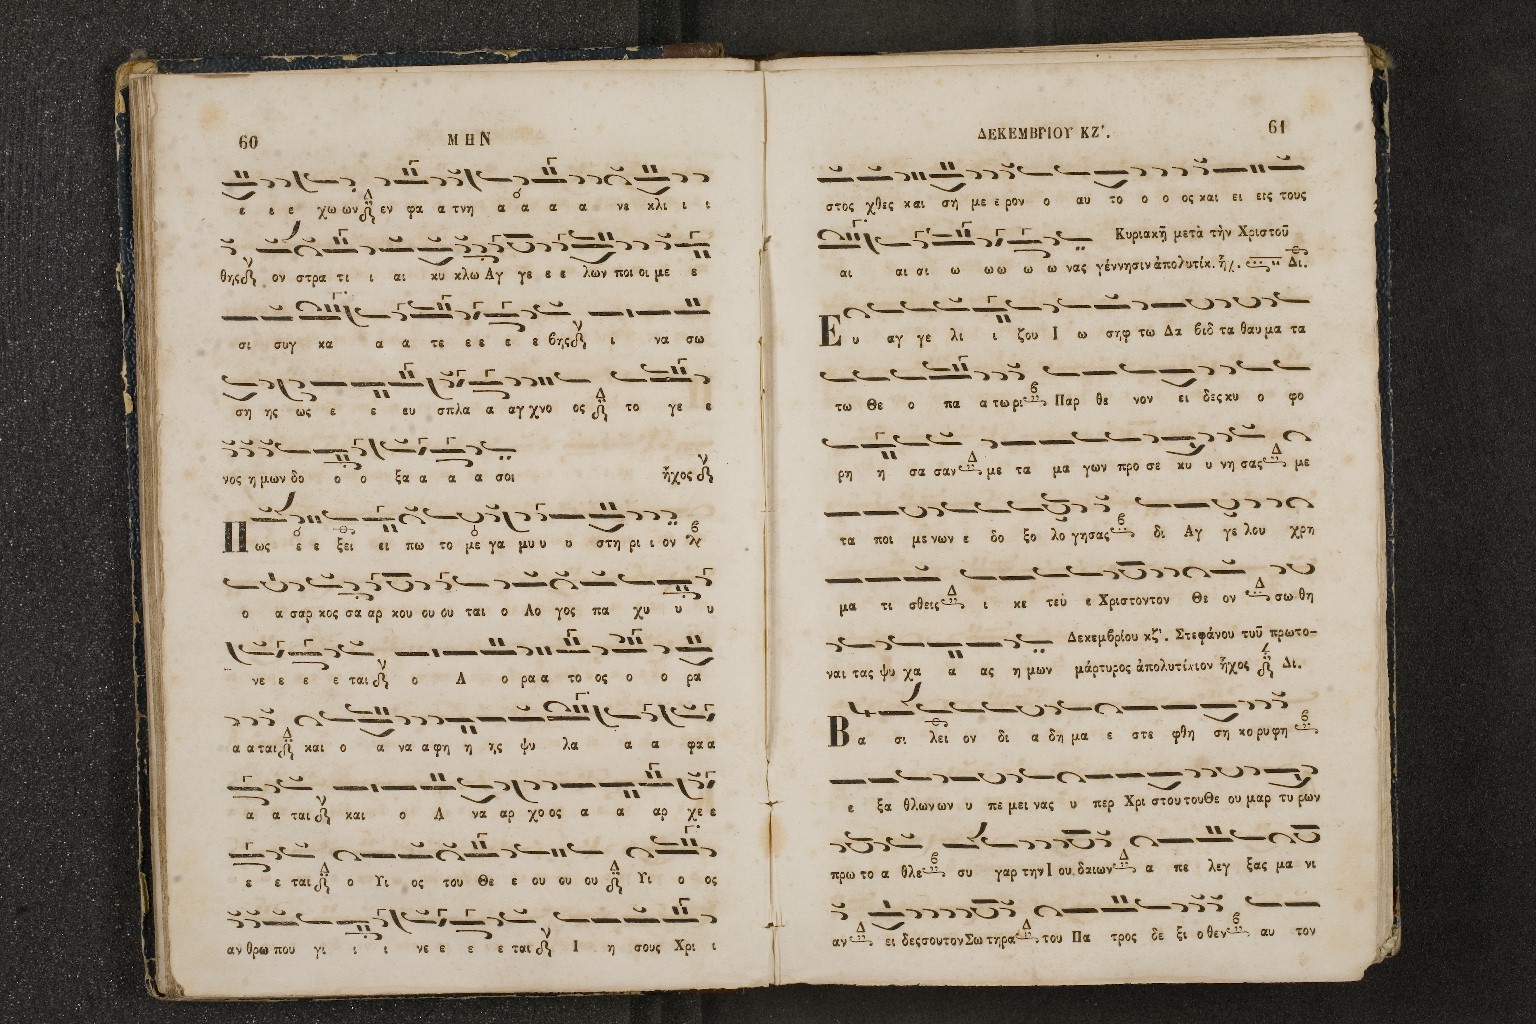 60
ΜΗΝ
ε ε ε χω ων εν φα α τνη α α α α νε κλι ι ι
θης ον στρα τι ι αι κυ κλω Αγ γε ε ε λων ποι οι με ε
σι συγ κα α α τε ε ε ε ε βης ι να σω
ση ης ως ε ε ευ σπλα α αγ χνο ος το γε ε
νος η μων δο ο ο ξα α α α σοι ἦχος
Πως ε ε ξει ει πω το με γα μυ υ υ στη ρι ι ον
ο α σαρ κος σα αρ κου ου ου ται ο Λο γος πα χυ υ υ
νε ε ε ε ται ο Α ο ρα α το ος ο ο ρα
α α ται και ο α να α φη η ης ψυ λα α α φα α
α α ται και ο Α να αρ χο ος α α αρ χε ε
ε ε ται ο Υι ος του Θε ε ου ου ου Υι ο ος
αν θρω που γι ι ι νε ε ε ε ται Ι η σους Χρι ι
ΔΕΚΕΜΒΡΙΟΥ ΚΖ'.
61
στος χθες και ση με ε ρον ο αυ το ο ο ος και ει εις τους
Κυριακῇ μετὰ τὴν Χριστοῦ
αι αι σι ω ω ω ω ω νας γέννησιν ἀπολυτίκ. ἦχ. Δι.
Ευ αγ γε λι ι ζου Ι ω σηφ τω Δα βιδ τα θαυ μα τα
τω Θε ο πα α τω ρι Παρ θε νον ει δες κυ ο φο
ρη η σα σαν με τα μα γων προ σε κυ υ νη σας με
τα ποι με νων ε δο ξο λο γησας δι Αγ γε λου χρη
μα τι σθεις ι κε τευ ε Χριστον τον Θε ον σω θη
Δεκεμβρίου κζ'. Στεφάνου τοῦ πρωτο-
ναι τας ψυ χα α ας η μων μάρτυρος ἀπολυτίκιον ἦχος Δι.
Βα σι λει ον δι α δη μα ε στε φθη ση κο ρυφη
ε ξα θλων ων υ πε μει νας υ περ Χρι στου του Θε ου μαρ τυ ρων
πρω το α θλε συ γαρ την Ι ου δαιων α πε λεγ ξας μα νι
αν ει δες σου τον Σω τηρα του Πα τρος δε ξι ο θεν αυ τον